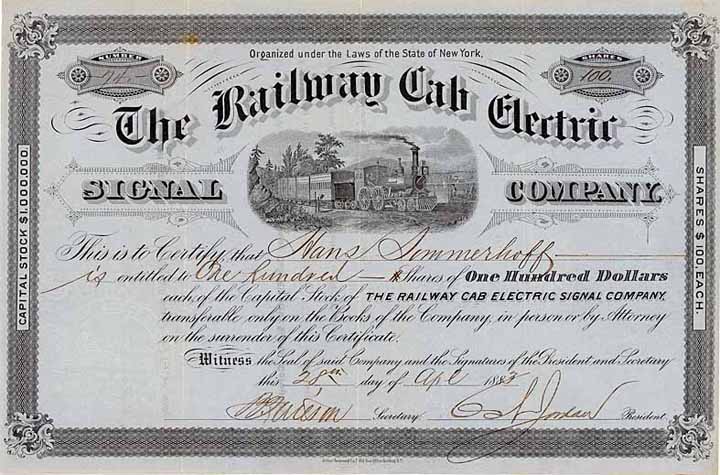 Organized under the Laws of the State of New York.
NUMBER
SHARES
100.
The Railway Cab Electric
SIGNAL COMPANY.
CAPITAL STOCK $1,000,000.
SHARES $100. EACH.
This is to Certify, that Hans Sommerhoff
is entitled to One Hundred Shares of One Hundred Dollars
each, of the Capital Stock of THE RAILWAY CAB ELECTRIC SIGNAL COMPANY,
transferable only on the Books of the Company, in person or by Attorney
on the surrender of this Certificate.
Witness the Seal of said Company and the Signatures of the President and Secretary
this 28th day of Apl 1883
Secretary. President.